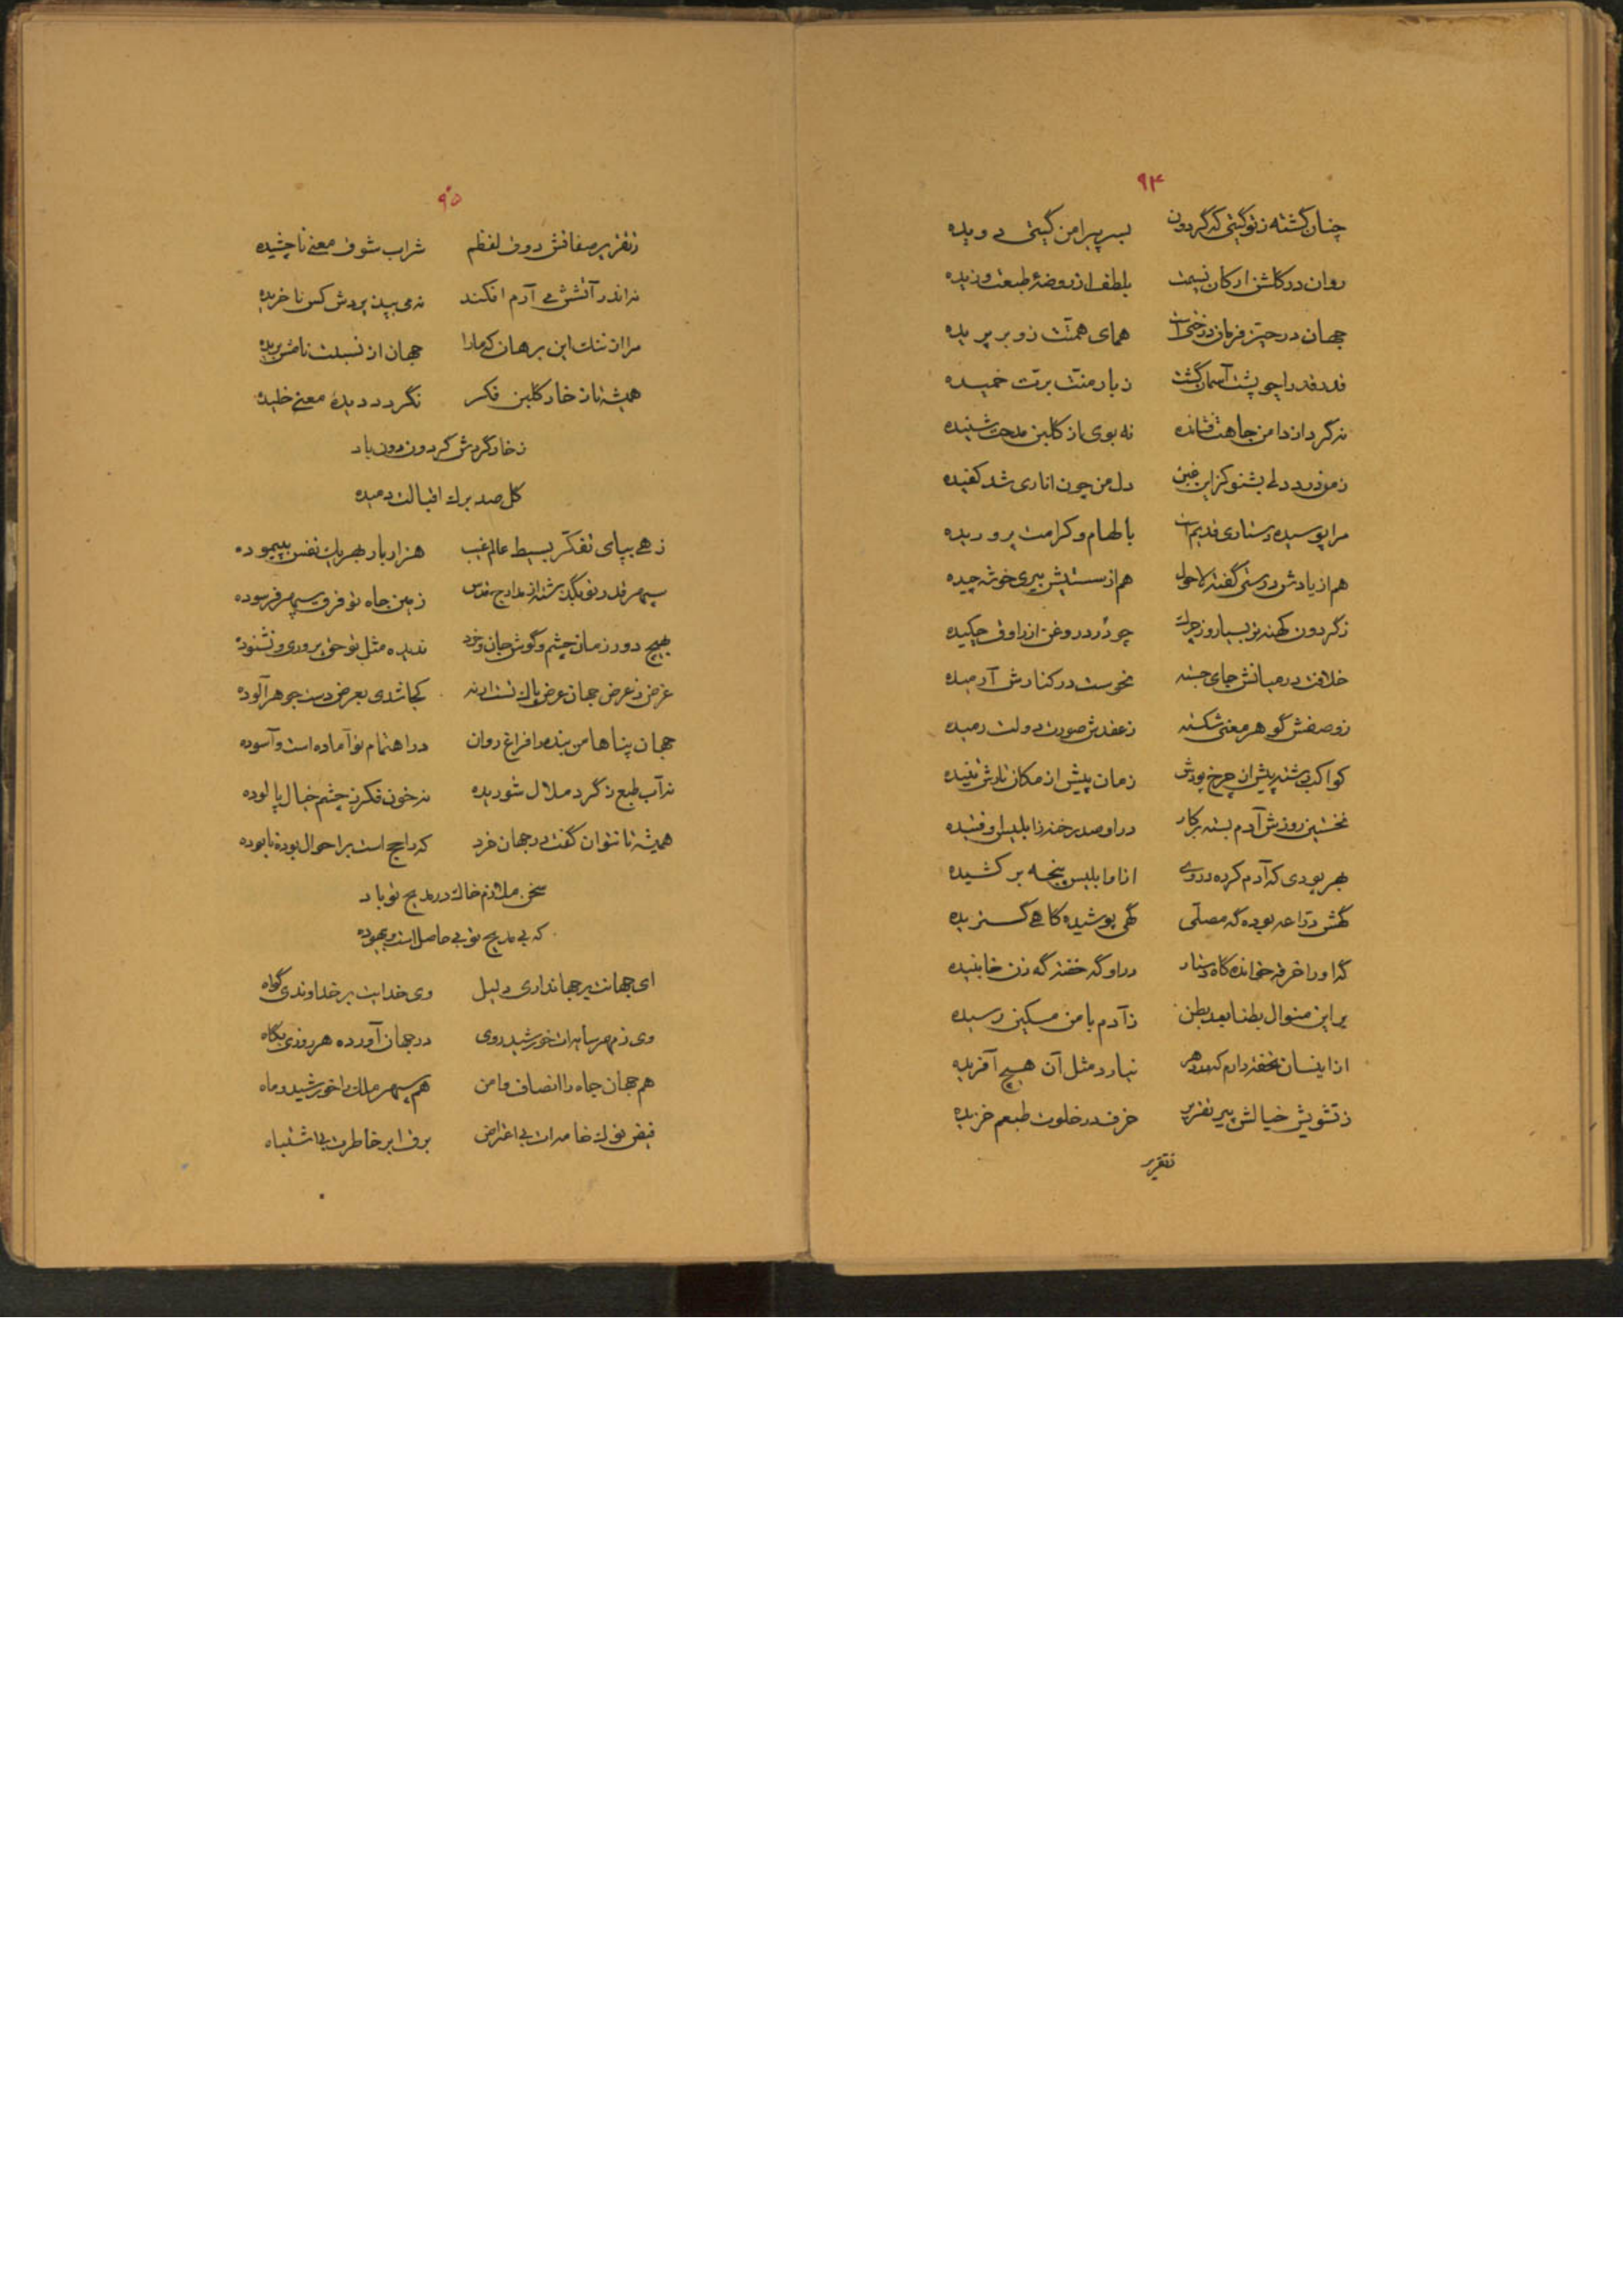 ۹۴
چنان گشته ز تو گیتی که گردون بسر پیرامن گیتی دویده
روان در گلشن ارکان نسیمت بلطف از روضهٔ طبعت وزیده
جهان در حیز فرمان همای همتت زو بر پریده
قدر قدرا چو پشت آسمان گشت ز بار منت برت خمیده
نه گرد از دامن جاهت فشانده نه بوی از گلبن مدحت شنیده
ز من درد دلی بشنو کز این غبن دل من چون اناری شد کفیده
مرا پوسیده دستاری قدیم است بالهام و کرامت پروریده
هم از یادش درستی گفته لاحول هم از سستیش پیری خوشه چیده
ز گردون کهنه تر بسیار و ز چرک چو درد روغن از راوق چکیده
خلافت در میانش جای جسته نحوست در کنارش آرمیده
ز وصفش گوهر معنی شکسته ز عقدش صورت دولت رمیده
کواکب رشته پیش از چرخ پودش زمان پیش از مکان تارش تنیده
نخستین روزش آدم بسته بر کار در او صد رخنه ز ابلیس اوفتیده
بهر بودی که آدم کرده در وی انا و ابلیس پنجه بر کشیده
گهش دراعه بوده گه مصلی گهی پوشیده گاهی گستریده
گه او را خرقه خوانده گاه دستار در او گه خفته گه زن خابنیده
بر این منوال بطنا بعد بطن ز آدم با من مسکین رسیده
از اینسان تحفه دارم که در دهر نیارد مثل آن هیچ آفریده
ز تشویش خیالش پیر تقریر خرف در خلوت طبعم خزیده
تقریر
۹۵
ز تقریر صفاتش ذوق لفظم شراب شوق معنی ناچشیده
نه اندر آتش می آرم افکند نه می بیند بردش کس ناخریده
مرا از ننگ این برهان که ما را جهان از نسبلت نامش بریده
همیشه تا ز خار گلبن فکر نگردد دیدهٔ معنی خلیده
ز خار گردش گردون دون باد
گل صد برگ اقبالت دمیده
زهی بپای تفکر بسیط عالم غیب هزار بار بهر یک نفس بپیموده
سپهر قدر تو بگذشته از مدارج قدس زمین جاه تو فرق سپهر فرسوده
بهیچ دور زمان چشم و گوش جان و خرد ندیده مثل تو حق پروری و نشنوده
غرض ز عرض جهان عرض پاک تست ار نه کجا شدی بعرض دست جوهر آلوده
جهان پناها من بنده را فراغ روان در اهتمام تو آماده است و آسوده
نه آب طبع ز گرد ملال شوریده نه خون فکر ز چشم خیال پالوده
همیشه تا نتوان گفت در جهان خرد که راجح است بر احوال بوده نابوده
سخن ملازم خاک در مدیح تو باد
که بی مدیح تو بی حاصل است و بیهوده
ای جهانت بر جهانداری دلیل وی خدایت بر خداوندی گواه
وی ز مهر سایه ات خورشید روی در جهان آورده هر روزی پگاه
هم جهان جاه را انصاف و امن هم سپهر ملک را خورشید و ماه
فیض نوک خامه ات بی اعتراض برق ابر خاطرت بی اشتباه